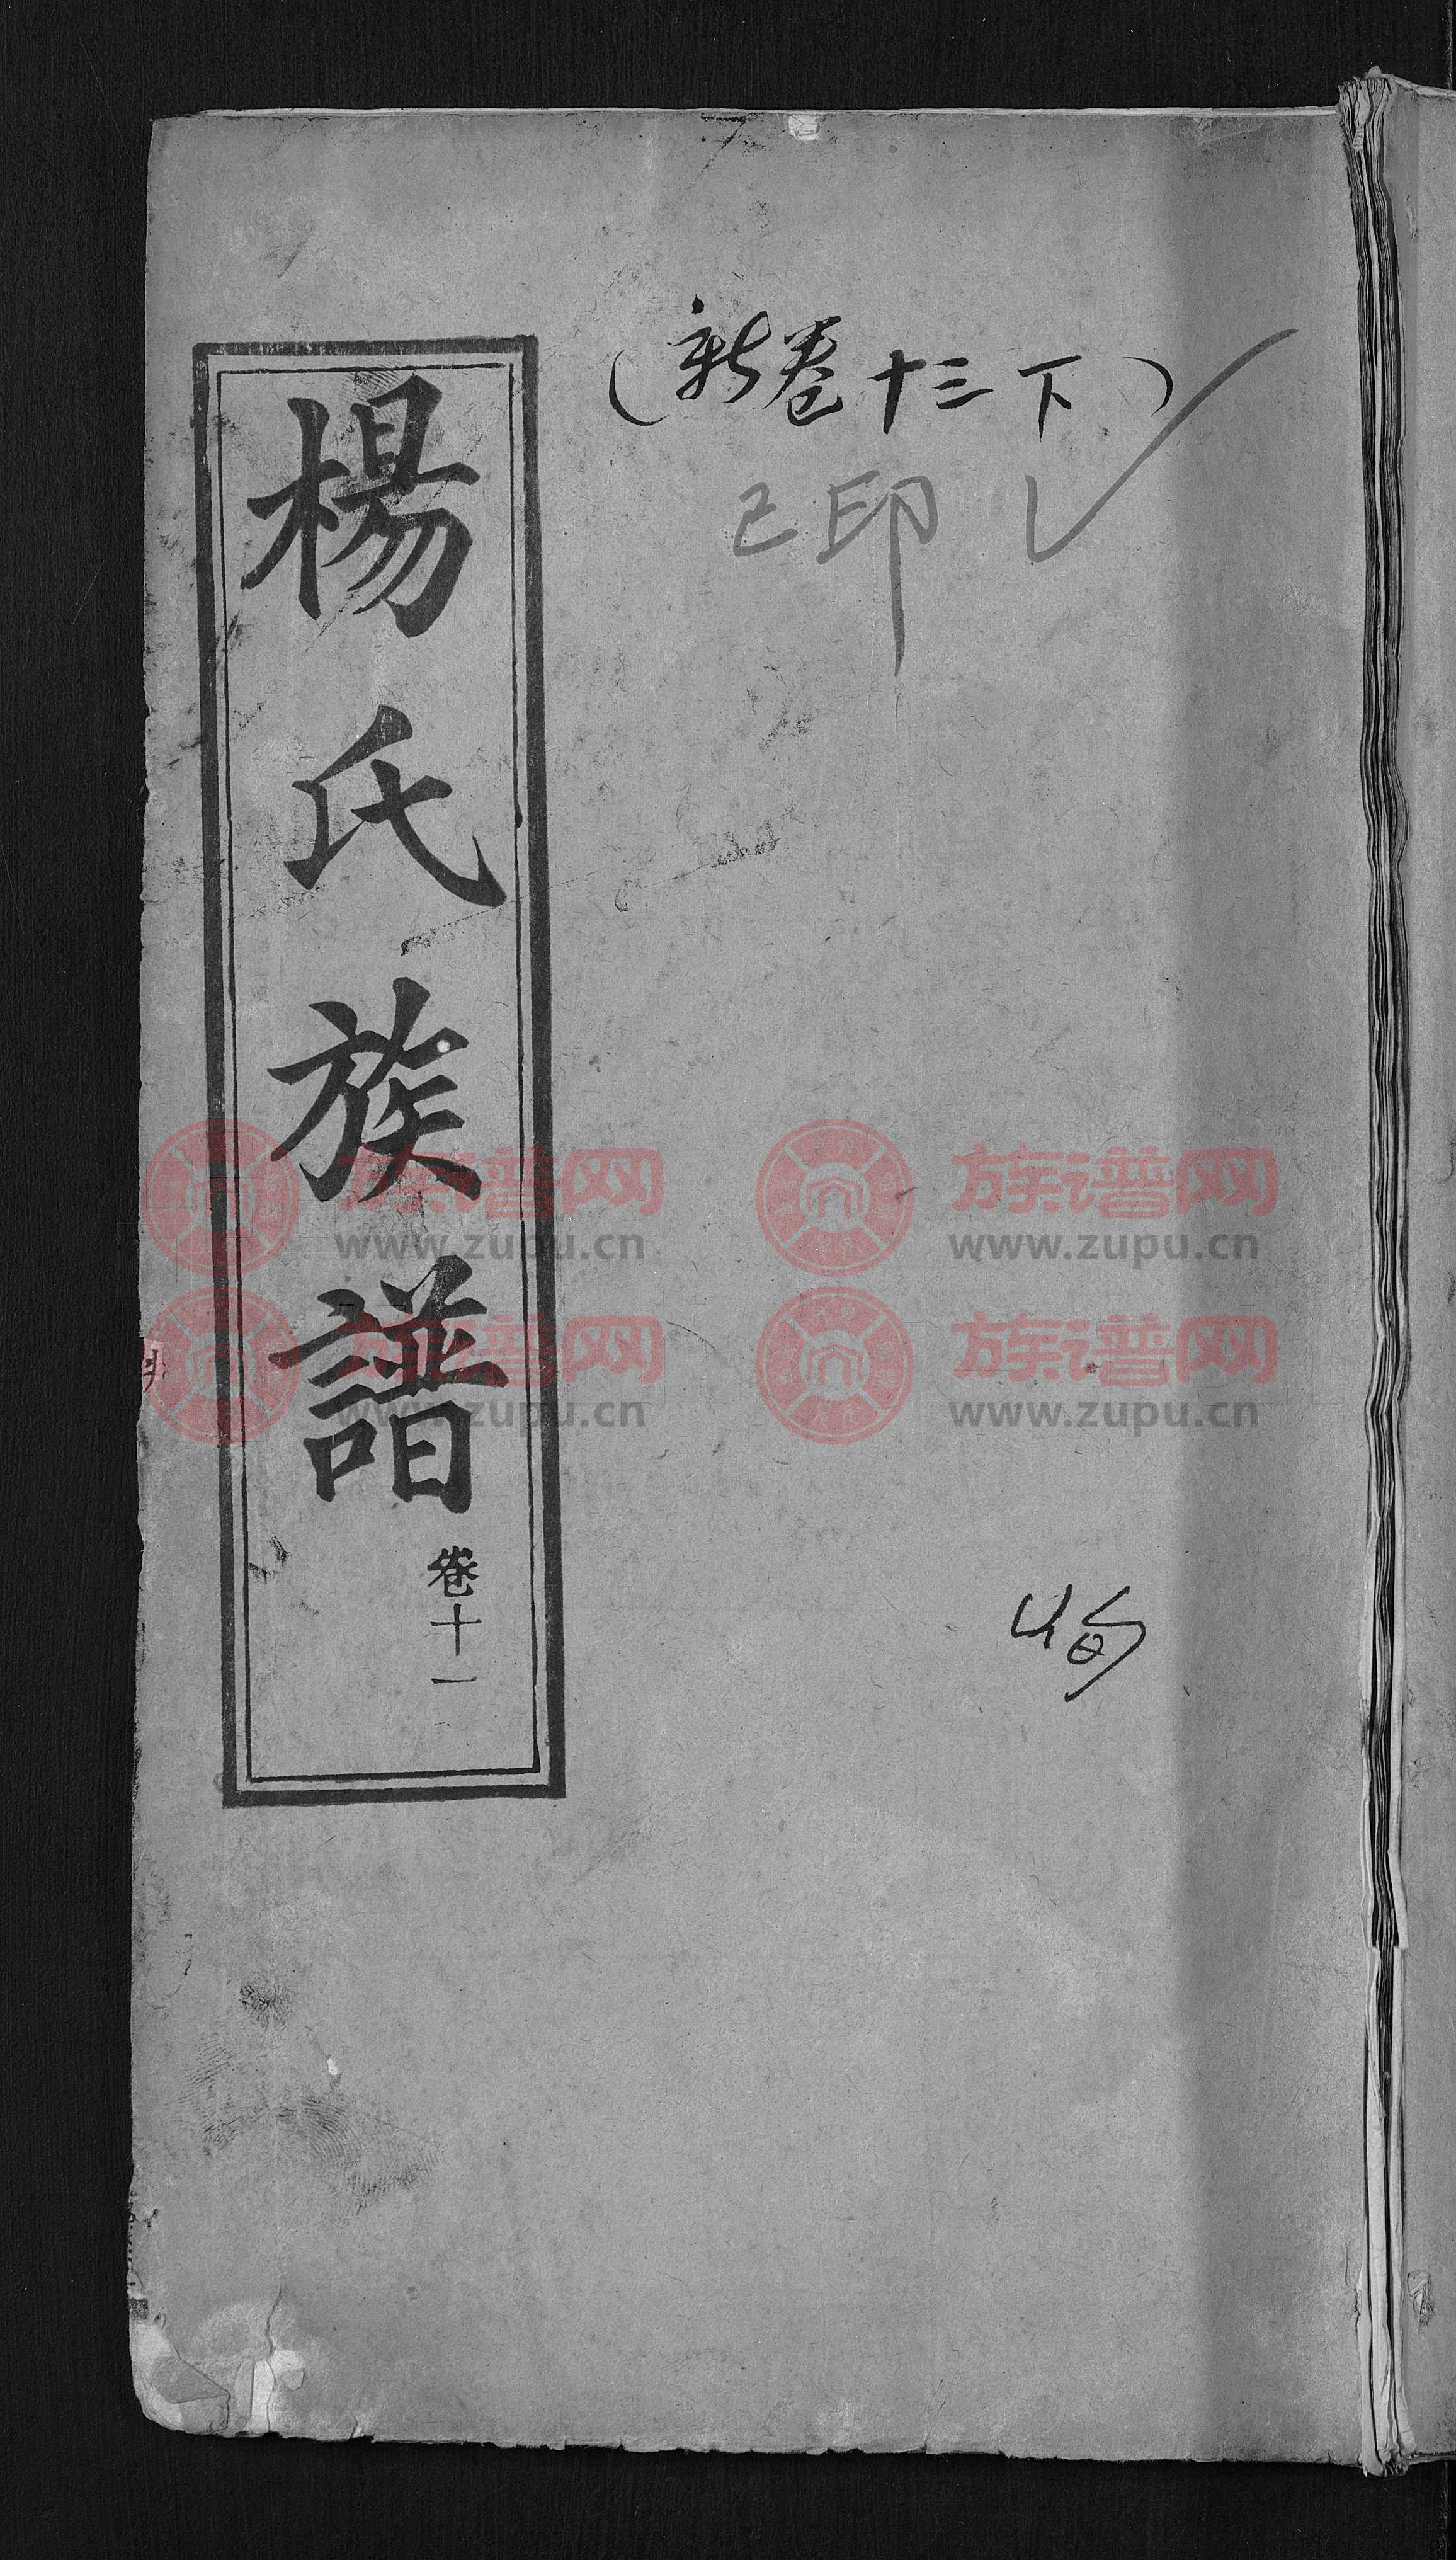 楊氏族譜
卷十一
(新卷十三下)
已印
族谱网
www.zupu.cn
族谱网
www.zupu.cn
族谱网
www.zupu.cn
族谱网
www.zupu.cn